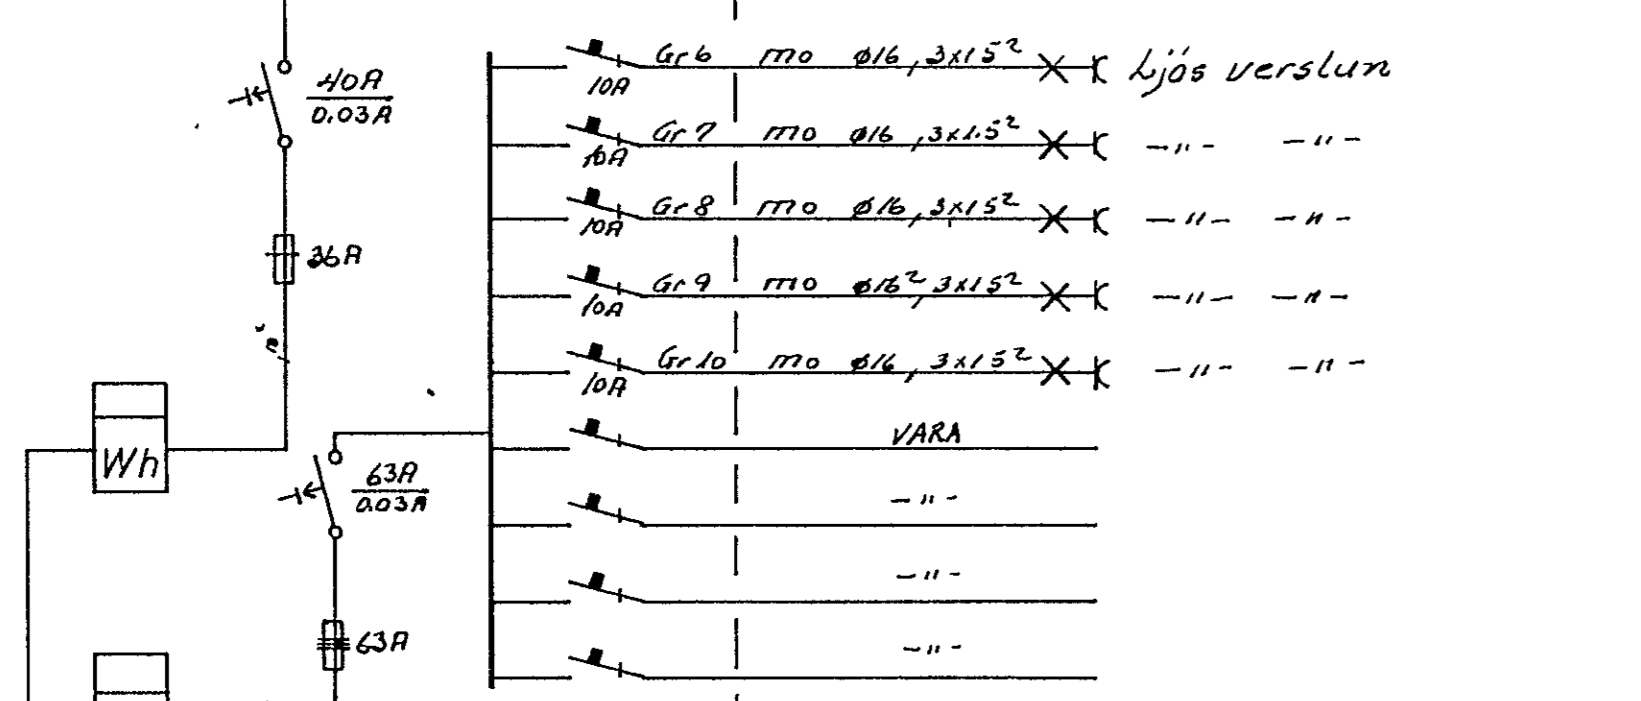 40A
0.03A
36A
Wh
63A
0.03A
63A
Gr 6 mo ø16, 3x1.5² Ljós verslun
10A
Gr 7 mo ø16, 3x1.5² -"- -"-
10A
Gr 8 mo ø16, 3x1.5² -"- -"-
10A
Gr 9 mo ø16², 3x1.5² -"- -"-
10A
Gr 10 mo ø16, 3x1.5² -"- -"-
10A
VARA
-"-
-"-
-"-